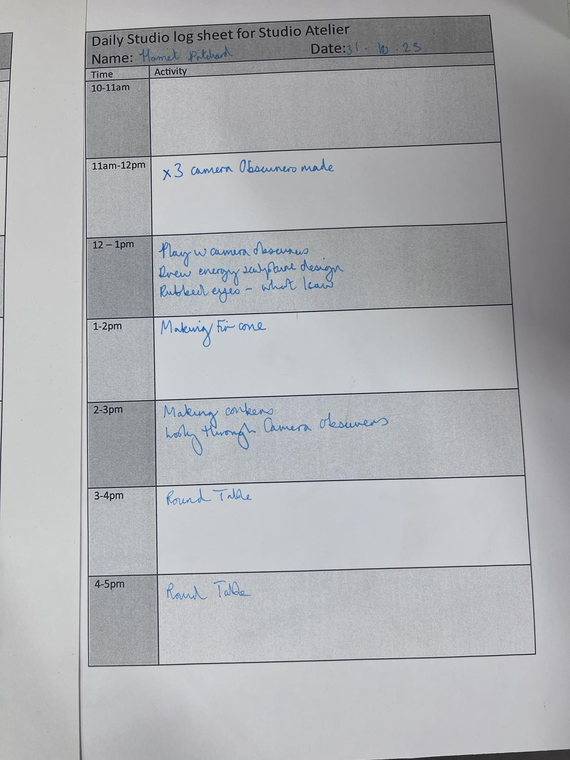 Daily Studio log sheet for Studio Atelier
Name: Date: 31 . 10 . 25
Time Activity
10-11am
11am-12pm x3 camera Obscurers made
12 – 1pm
Play w camera obscuras
Drew energy sculpture design
Rubbed eyes - what I saw
1-2pm Making Fir cone
2-3pm Making conkers
through Camera obscurers
3-4pm Round Table
4-5pm Round Table